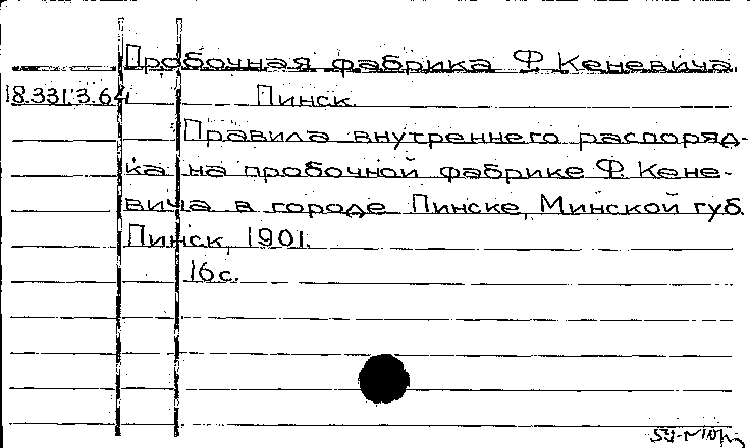 Пробочная фабрика Ф. Кеневича.
18.331.3.64 Пинск.
Правила внутреннего распоряд-
ка на пробочной фабрике Ф. Кене-
вича в городе Пинске, Минской губ.
Пинск, 1901.
16 с.